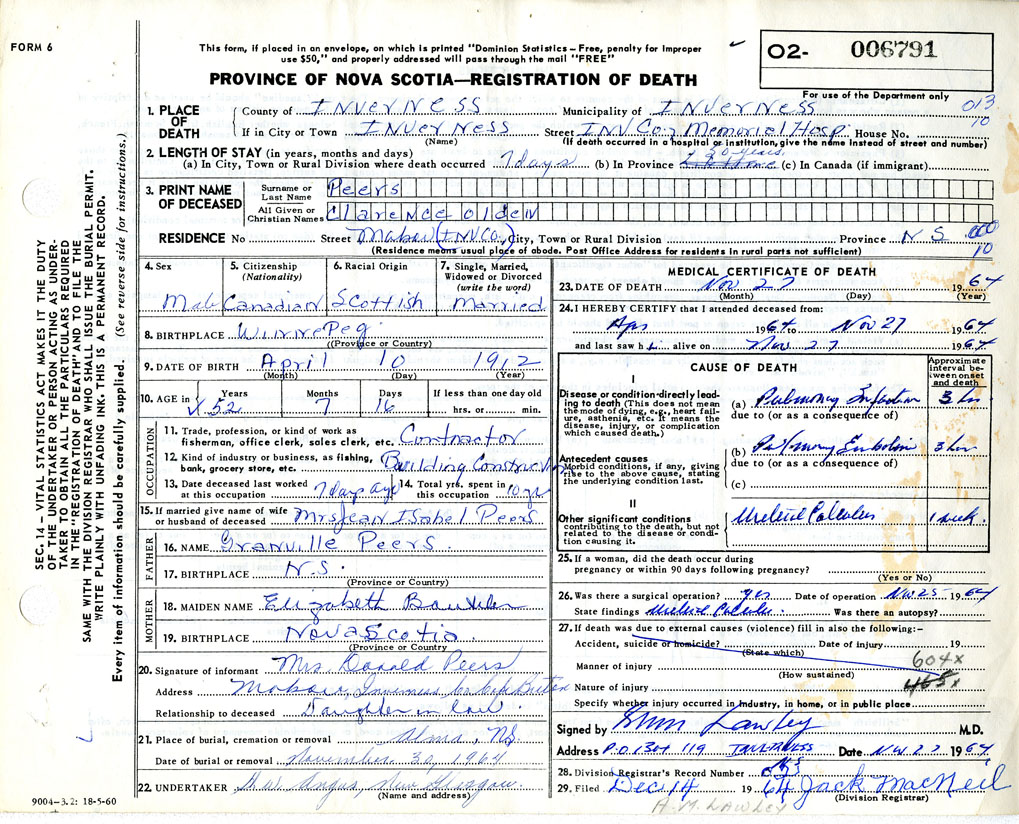 FORM 6
This form, if placed in an envelope, on which is printed "Dominion Statistics – Free, penalty for improper
use $50," and properly addressed will pass through the mail "FREE"
PROVINCE OF NOVA SCOTIA—REGISTRATION OF DEATH
O2- 006791
For use of the Department only
013
10
1. PLACE OF DEATH
County of Inverness Municipality of Inverness
If in City or Town Inverness Street INV Co. Memorial Hosp. House No.
(Name) (If death occurred in a hospital or institution, give the name instead of street and number)
2. LENGTH OF STAY (in years, months and days)
(a) In City, Town or Rural Division where death occurred 7 days (b) In Province 50 years (c) In Canada (if immigrant)
3. PRINT NAME OF DECEASED
Surname or Last Name Peers
All Given or Christian Names Clarence Olden
RESIDENCE No Street Mabou (INV Co.) City, Town or Rural Division Province N S
000
10
(Residence means usual place of abode. Post Office Address for residents in rural parts not sufficient)
4. Sex Male
5. Citizenship (Nationality) Canadian
6. Racial Origin Scottish
7. Single, Married, Widowed or Divorced (write the word) Married
8. BIRTHPLACE Winnepeg
(Province or Country)
9. DATE OF BIRTH April 10 1912
(Month) (Day) (Year)
10. AGE in Years Months Days If less than one day old
52 7 16 hrs. or min.
OCCUPATION
11. Trade, profession, or kind of work as fisherman, office clerk, sales clerk, etc. Contractor
12. Kind of industry or business, as fishing, bank, grocery store, etc. Building Construction
13. Date deceased last worked at this occupation 7 days ago 14. Total yrs. spent in this occupation 10 yrs
15. If married give name of wife or husband of deceased Mrs Jean Isabel Peers
FATHER
16. NAME Granville Peers.
17. BIRTHPLACE N.S.
(Province or Country)
MOTHER
18. MAIDEN NAME Elizabeth
19. BIRTHPLACE Nova Scotia
(Province or Country)
20. Signature of informant Mrs. Donald Peers
Address Mabou, Inverness Co Cape Breton
Relationship to deceased Daughter in law
21. Place of burial, cremation or removal Alma, N.S.
Date of burial or removal November 30, 1964
22. UNDERTAKER H.W. Angus, New Glasgow
(Name and address)
9004–3.2: 18-5-60
MEDICAL CERTIFICATE OF DEATH
23. DATE OF DEATH Nov 27 1964
(Month) (Day) (Year)
24. I HEREBY CERTIFY that I attended deceased from:
Apr 1964 to Nov 27 1964
and last saw him alive on Nov 27 1964
CAUSE OF DEATH
Approximate interval between onset and death
I
Disease or condition directly leading to death (This does not mean the mode of dying, e.g., heart failure, asthenia, etc. It means the disease, injury, or complication which caused death.)
(a) Pulmonary Infarction 3 hrs
due to (or as a consequence of)
Antecedent causes
Morbid conditions, if any, giving rise to the above cause, stating the underlying condition last.
(b) Pulmonary Embolism 3 hrs
due to (or as a consequence of)
(c)
II
Other significant conditions contributing to the death, but not related to the disease or condition causing it.
Ureteric Calculus 1 week.
25. If a woman, did the death occur during
pregnancy or within 90 days following pregnancy?
(Yes or No)
26. Was there a surgical operation? yes Date of operation Nov 25 1964
State findings Ureteric Calculus Was there an autopsy?
27. If death was due to external causes (violence) fill in also the following:–
Accident, suicide or homicide? Date of injury 19
(State which)
Manner of injury 604x
(How sustained)
Nature of injury 465x
Specify whether injury occurred in industry, in home, or in public place
Signed by Lawley M.D.
Address P.O. Box 119 Inverness Date Nov 27 1964
28. Division Registrar's Record Number
29. Filed Dec 14 1964 Jack MacNeil
(Division Registrar)
A.M. LAWLEY
SEC. 14 – VITAL STATISTICS ACT MAKES IT THE DUTY
OF THE UNDERTAKER OR PERSON ACTING AS UNDER-
TAKER TO OBTAIN ALL THE PARTICULARS REQUIRED
IN THE "REGISTRATION OF DEATH" AND TO FILE THE
SAME WITH THE DIVISION REGISTRAR WHO SHALL ISSUE THE BURIAL PERMIT.
WRITE PLAINLY WITH UNFADING INK. THIS IS A PERMANENT RECORD.
Every item of information should be carefully supplied. (See reverse side for instructions.)